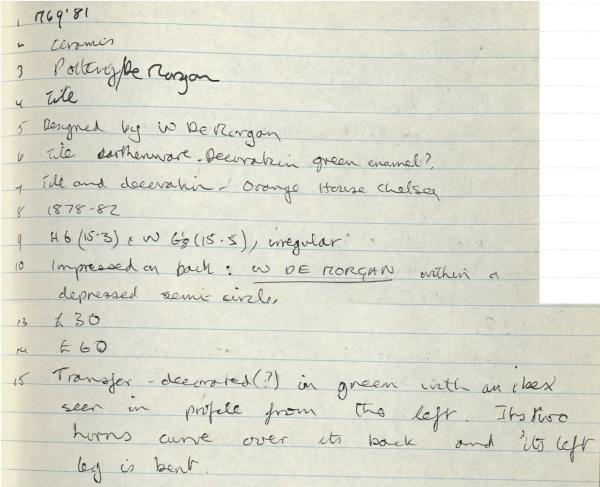 1 769'81
2 Ceramics
3 Pottery/De Morgan
4 Tile
5 Designed by W De Morgan
6 Tile earthenware - Decoration green enamel?
7 Tile and decoration - Orange House Chelsea
8 1878-82
9 H 6 (15.3) x W 6⅛ (15.5), irregular
10 Impressed on back : W DE MORGAN within a
depressed semi-circle.
13 £30
14 £60
15 Transfer-decorated(?) in green with an ibex
seen in profile from the left. Its two
horns curve over its back and its left
leg is bent.